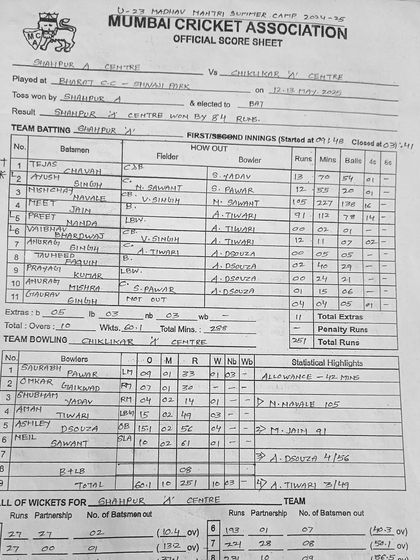 U-23 MADHAV MANTRI SUMMER CAMP 2024-25
MUMBAI CRICKET ASSOCIATION
OFFICIAL SCORE SHEET
SHAHPUR A CENTRE Vs CHIKLIKAR 'A' CENTRE
Played at BHARAT C.C - SHIVAJI PARK on 12-13 MAY. 2025
Toss won by SHAHPUR A & elected to BAT
Result SHAHPUR 'A' CENTRE WON BY 84 RUNS.
TEAM BATTING SHAHPUR 'A' FIRST/SECOND INNINGS (Started at 09:48 Closed at 03:41)
No. Batsmen HOW OUT Fielder Bowler Runs Mins Balls 4s 6s
1 TEJAS CHAVAN C&B S. YADAV 13 70 54 01 -
2 AYUSH SINGH C. N. SAWANT S. PAWAR 12 55 20 01 -
3 NAVALE C. V. SINGH N. SAWANT 105 227 138 16 -
4 MEET JAIN A. TIWARI 91 112 78 14 -
5 PREET NANDA LBW. A. TIWARI 00 02 01 - -
6 VAIBHAV BHARDWAJ C. V. SINGH A. TIWARI 12 11 07 02 -
7 ANURAG SINGH C. A. TIWARI A. DSOUZA 00 05 05 - -
8 TAUHEED A. DSOUZA 02 40 29 - -
9 PRAYAG KUMAR LBW. A. DSOUZA 00 24 21 - -
10 ANURAG MISHRA C. S. PAWAR A. DSOUZA 01 15 06 - -
11 GAURAV SINGH NOT OUT 04 04 05 01 -
Extras : b 05 lb 03 nb 03 wb - 11 Total Extras
- Penalty Runs
Total : Overs : 10 Wkts. 60.1 Total Mins. : 288 251 Total Runs
TEAM BOWLING CHIKLIKAR 'A' CENTRE
No. Bowlers O M R W Nb Wb Statistical Highlights
1 SAURABH PAWAR LM 09 01 33 01 03 - ALLOWANCE - 42 MINS
2 OMKAR GAIKWAD RM 07 01 30 - - -
3 SHUBHAM YADAV RM 04 02 14 01 - - 1> N. NAVALE 105
4 AMAN TIWARI 15 02 49 03 - -
5 ASHLEY DSOUZA OB 151 02 56 04 - - 2> M. JAIN 91
6 NEIL SAWANT SLA 10 02 61 01 - -
7 3> A. DSOUZA 4/56
8 B+LB 08
9 TOTAL 60.1 10 251 10 03 - 4> A. TIWARI 3/49
ALL OF WICKETS FOR SHAHPUR 'A' CENTRE TEAM
Runs Partnership No. of Batsmen out Runs Partnership No. of Batsmen out
27 27 02 (10.4 ov) 6 193 01 07 (40.3 ov)
27 00 01 (13.2 ov) 7 221 28 08 (50.1 ov)